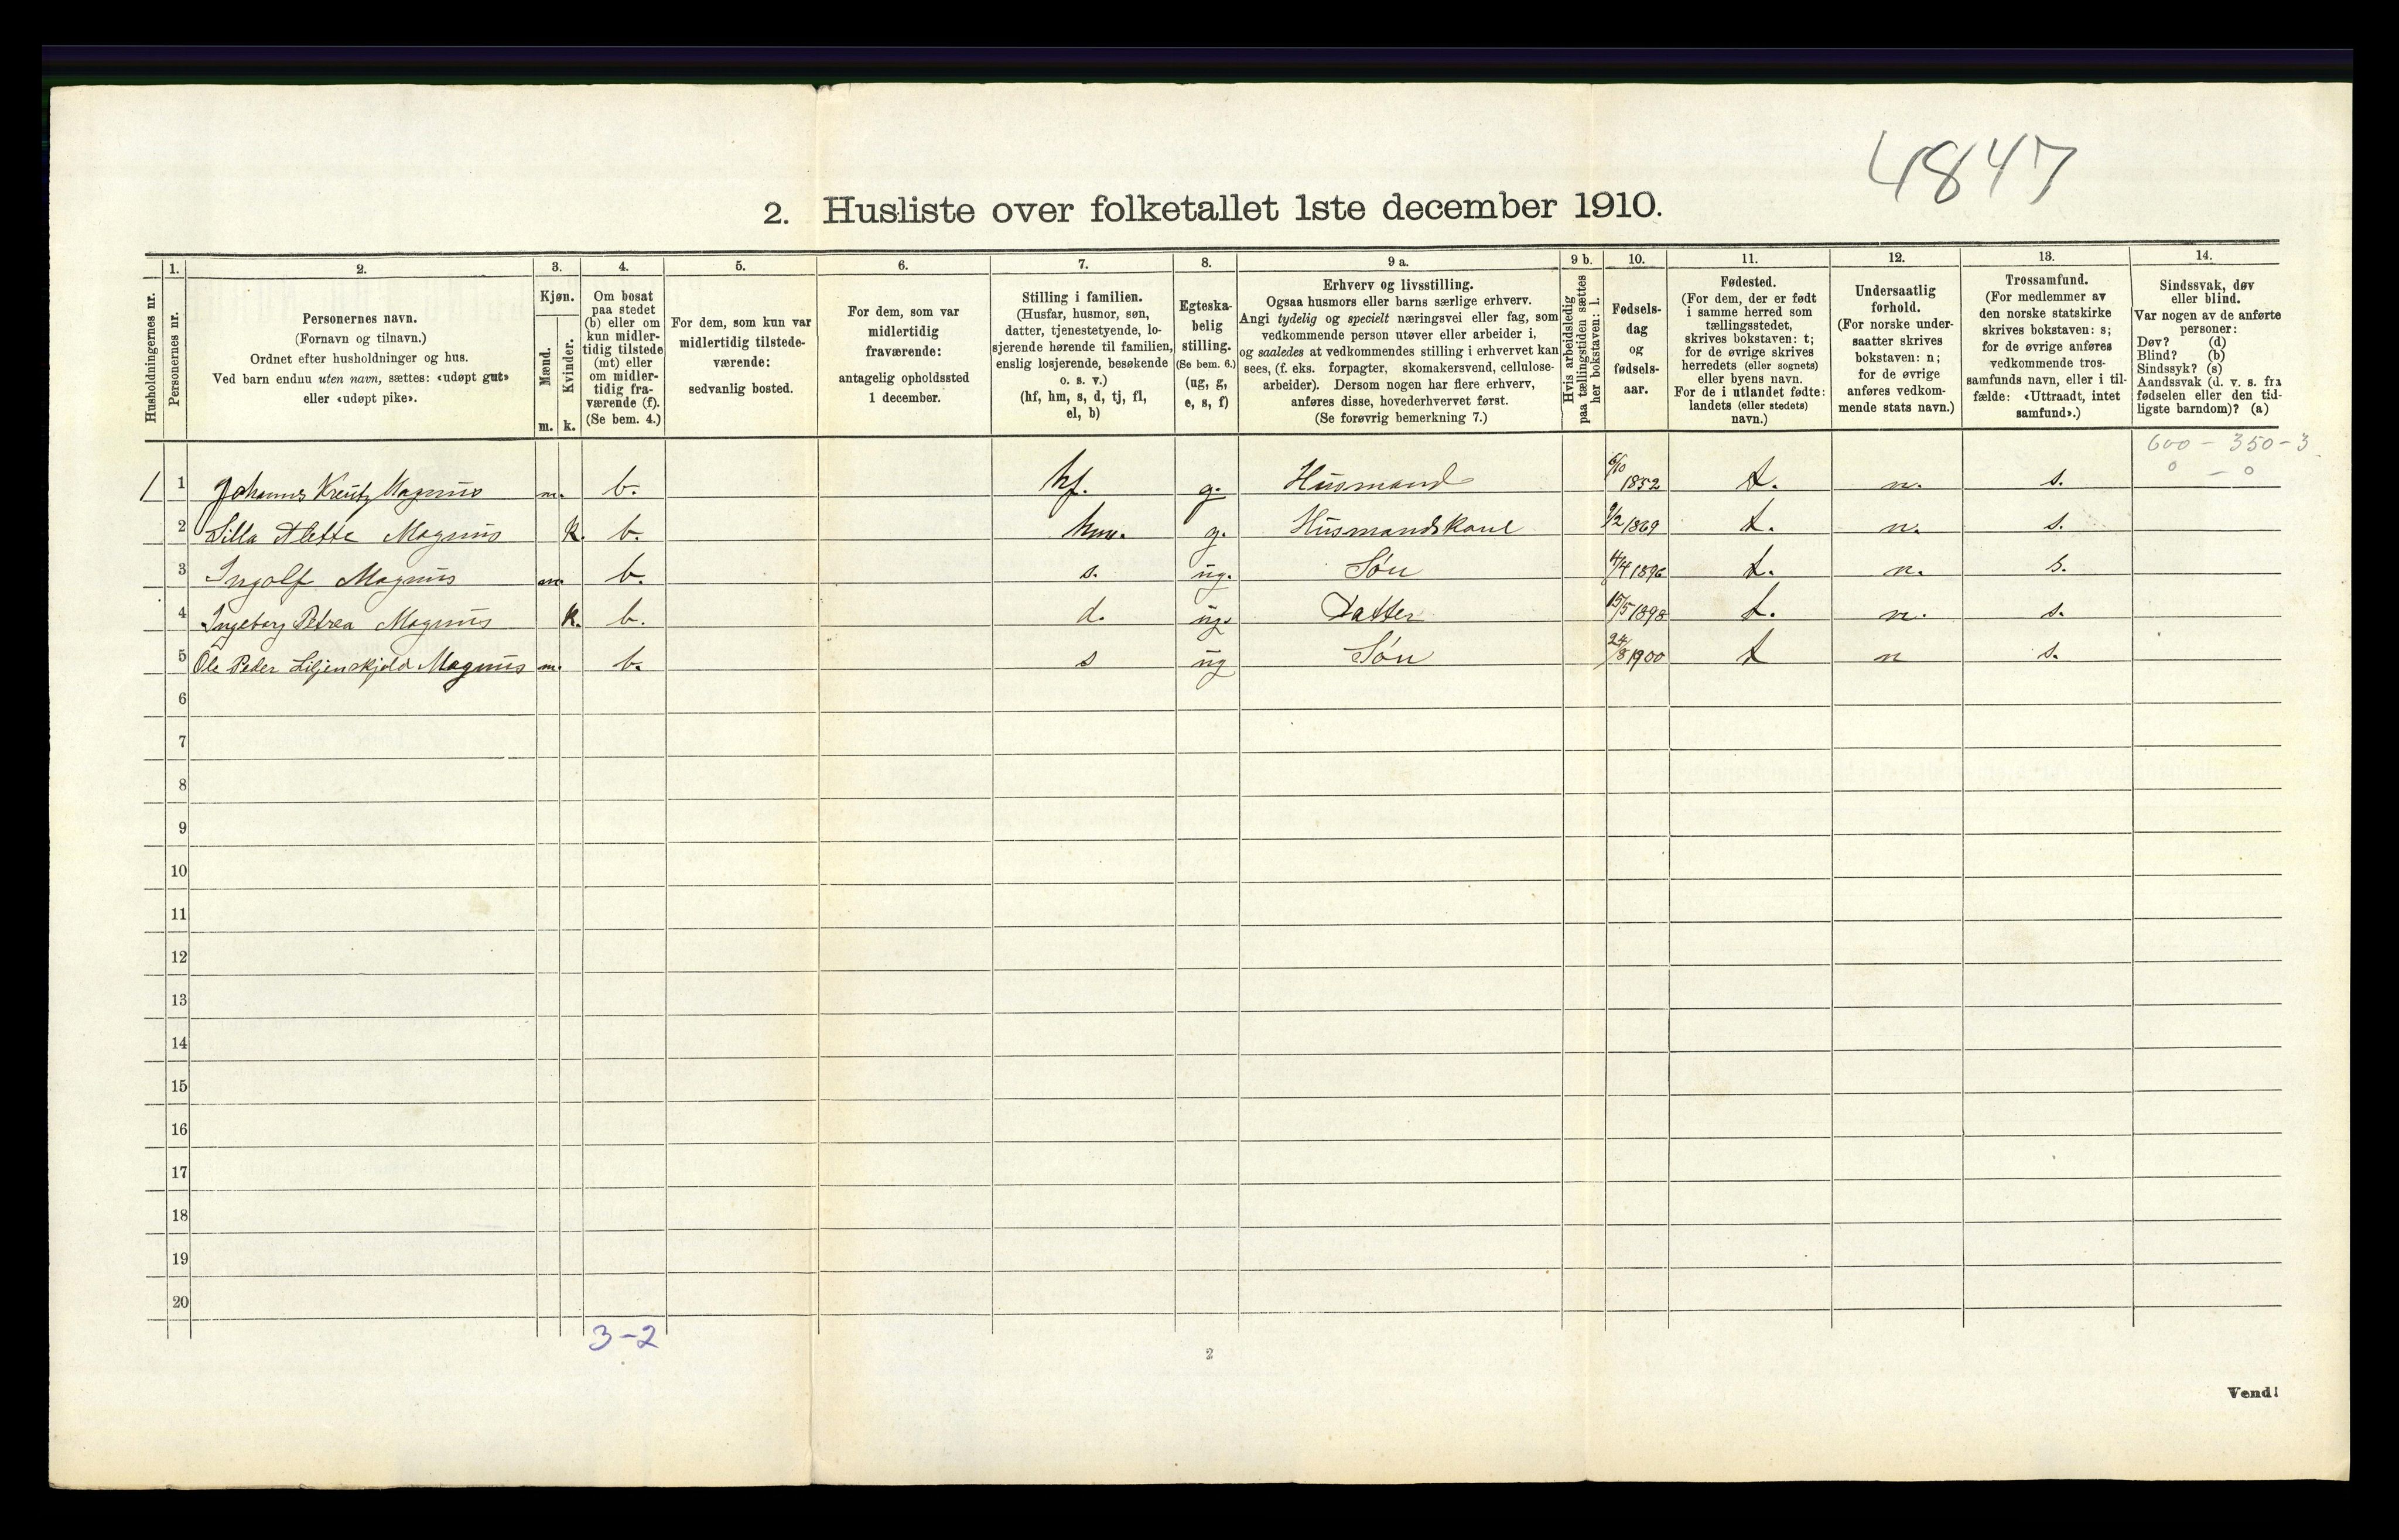 4847
2. Husliste over folketallet 1ste december 1910.
1. 2. 3. 4. 5. 6. 7. 8. 9 a. 9 b. 10. 11. 12. 13. 14.
Husholdningernes nr.
Personernes nr.
Personernes navn.
(Fornavn og tilnavn.)
Ordnet efter husholdninger og hus.
Ved barn endnu uten navn, sættes: «udøpt gut»
eller «udøpt pike».
Kjøn.
Mænd.
Kvinder.
m. k.
Om bosat
paa stedet
(b) eller om
kun midler-
tidig tilstede
(mt) eller
om midler-
tidig fra-
værende (f).
(Se bem. 4.)
For dem, som kun var
midlertidig tilstede-
værende:
sedvanlig bosted.
For dem, som var
midlertidig
fraværende:
antagelig opholdssted
1 december.
Stilling i familien.
(Husfar, husmor, søn,
datter, tjenestetyende, lo-
sjerende hørende til familien,
enslig losjerende, besøkende
o. s. v.)
(hf, hm, s, d, tj, fl,
el, b)
Egteska-
belig
stilling.
(Se bem. 6.)
(ug, g,
e, s, f)
Erhverv og livsstilling.
Ogsaa husmors eller barns særlige erhverv.
Angi tydelig og specielt næringsvei eller fag, som
vedkommende person utøver eller arbeider i,
og saaledes at vedkommendes stilling i erhvervet kan
sees, (f. eks. forpagter, skomakersvend, cellulose-
arbeider). Dersom nogen har flere erhverv,
anføres disse, hovederhvervet først.
(Se forøvrig bemerkning 7.)
Hvis arbeidsledig
paa tællingstiden sættes
her bokstaven: l.
Fødsels-
dag
og
fødsels-
aar.
Fødested.
(For dem, der er født
i samme herred som
tællingsstedet,
skrives bokstaven: t;
for de øvrige skrives
herredets (eller sognets)
eller byens navn.
For de i utlandet fødte:
landets (eller stedets)
navn.)
Undersaatlig
forhold.
(For norske under-
saatter skrives
bokstaven: n;
for de øvrige
anføres vedkom-
mende stats navn.)
Trossamfund.
(For medlemmer av
den norske statskirke
skrives bokstaven: s;
for de øvrige anføres
vedkommende tros-
samfunds navn, eller i til-
fælde: «Uttraadt, intet
samfund».)
Sindssvak, døv
eller blind.
Var nogen av de anførte
personer:
Døv? (d)
Blind? (b)
Sindssyk? (s)
Aandssvak (d. v. s. fra
fødselen eller den tid-
ligste barndom)? (a)
600 - 350 - 3
0 - 0
1 1 Johannes Kreutz Magnus m. b. hf. g. Husmand 6/10 1852 t. n. s.
2 Lilla Alette Magnus k. b. hm. g. Husmandskone 9/2 1869 t. n. s.
3 Ingolf Magnus m. b. s. ug. Søn 4/4 1896 t. n. s.
4 Ingeborg Petrea Magnus k. b. d. ug. Datter 15/5 1898 t. n. s.
5 Ole Peder Liljenskjold Magnus m. b. s ug Søn 24/8 1900 t n s.
6
7
8
9
10
11
12
13
14
15
16
17
18
19
20
3-2
2
Vend!